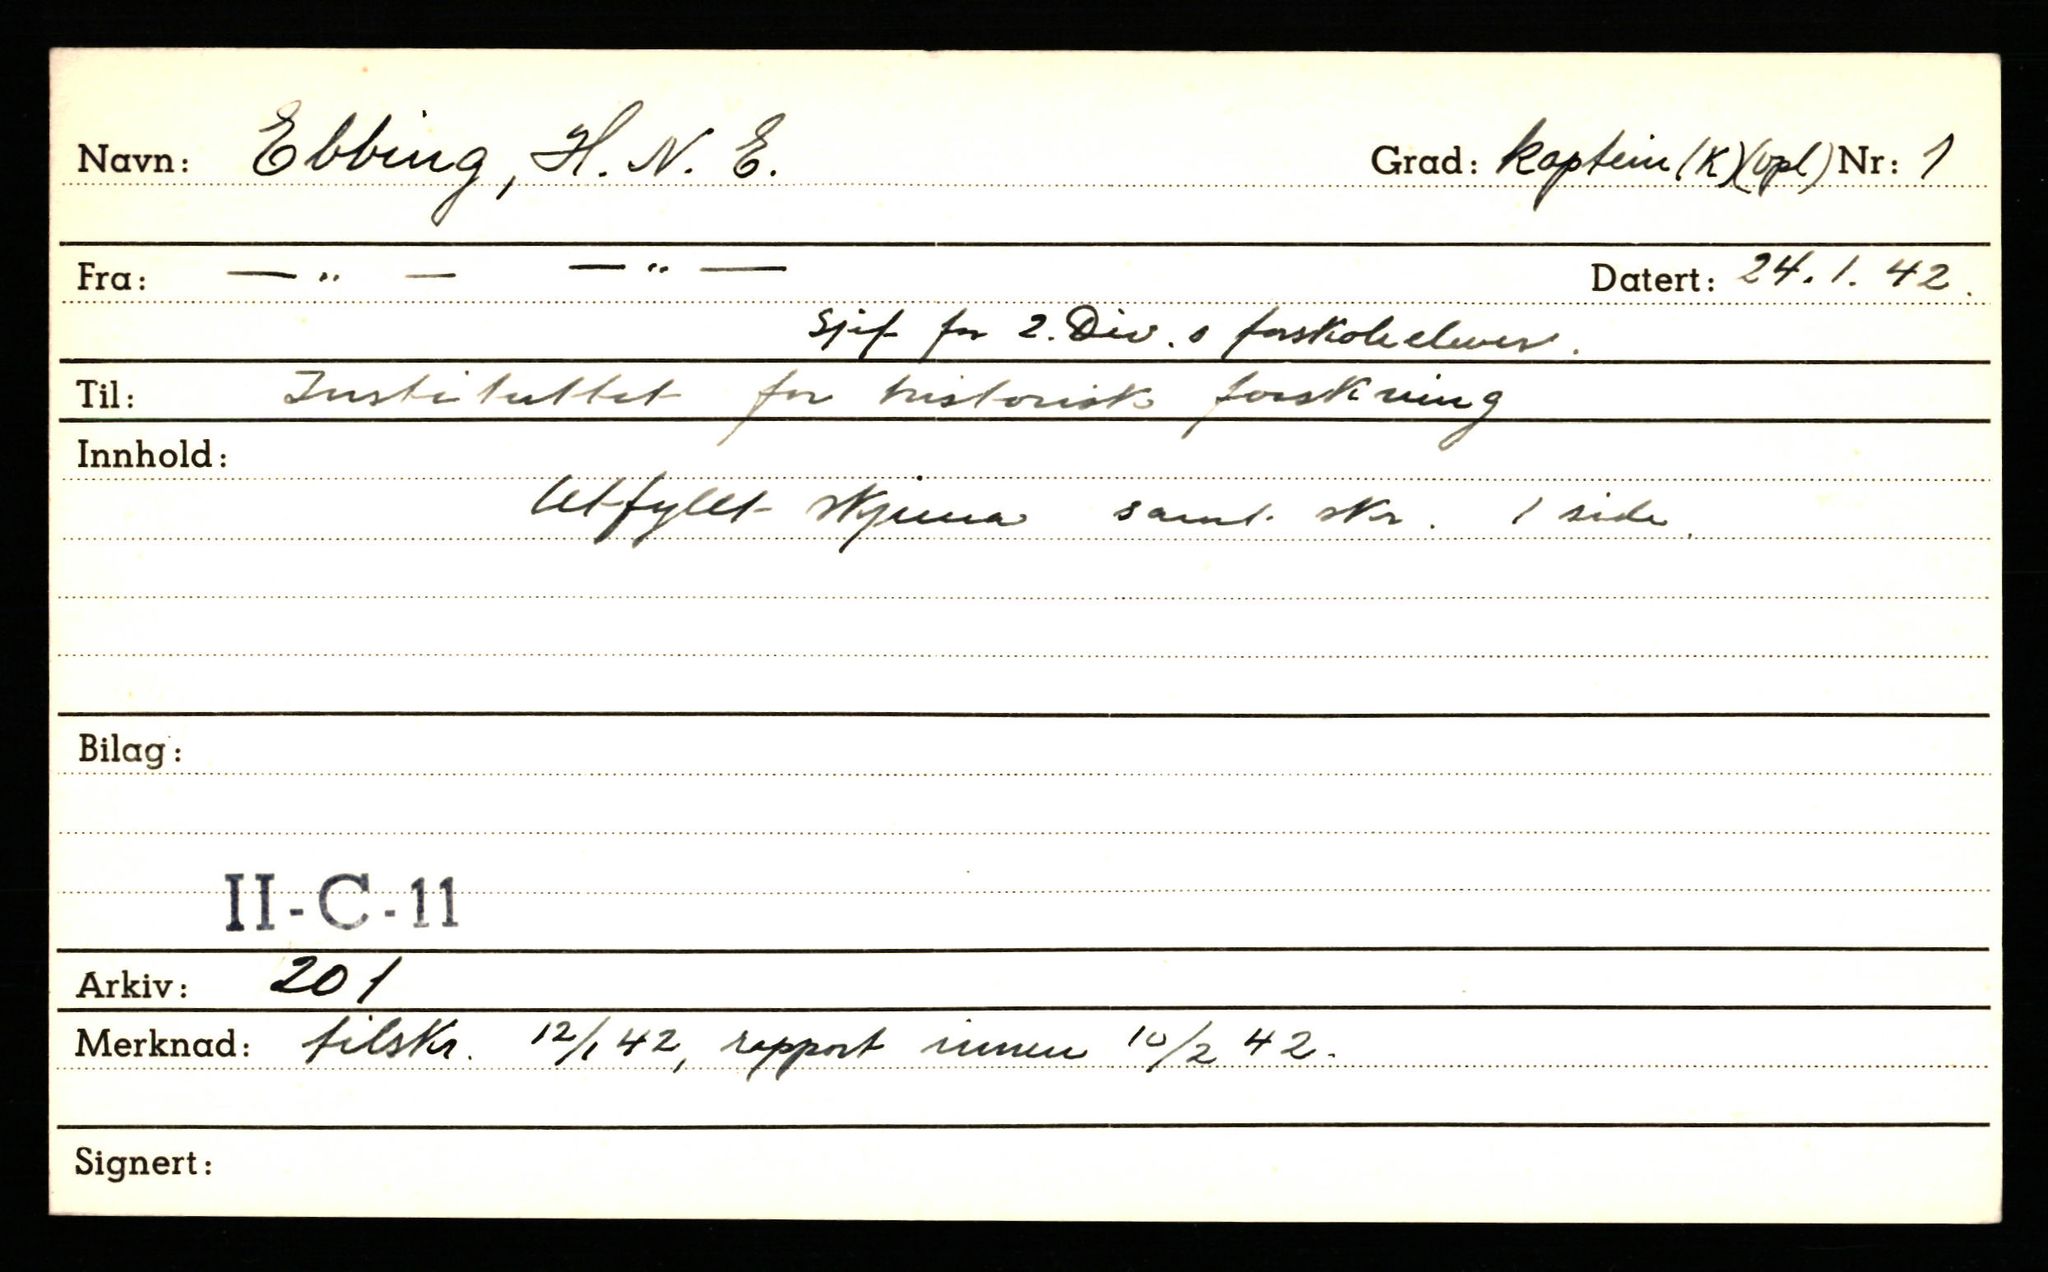 Navn: Ebbing, H. N. E. Grad: kaptein (K)(opl) Nr: 1
Fra: — " — — " — Datert: 24.1.42.
Sjef for 2. Div.s forskoleelever.
Til: Instituttet for historisk forskning
Innhold:
Utfyllt skjema samt skr. 1 side.
Bilag:
II-C-11
Arkiv: 201
Merknad: tilskr. 12/1 42, rapport innen 10/2 42.
Signert: